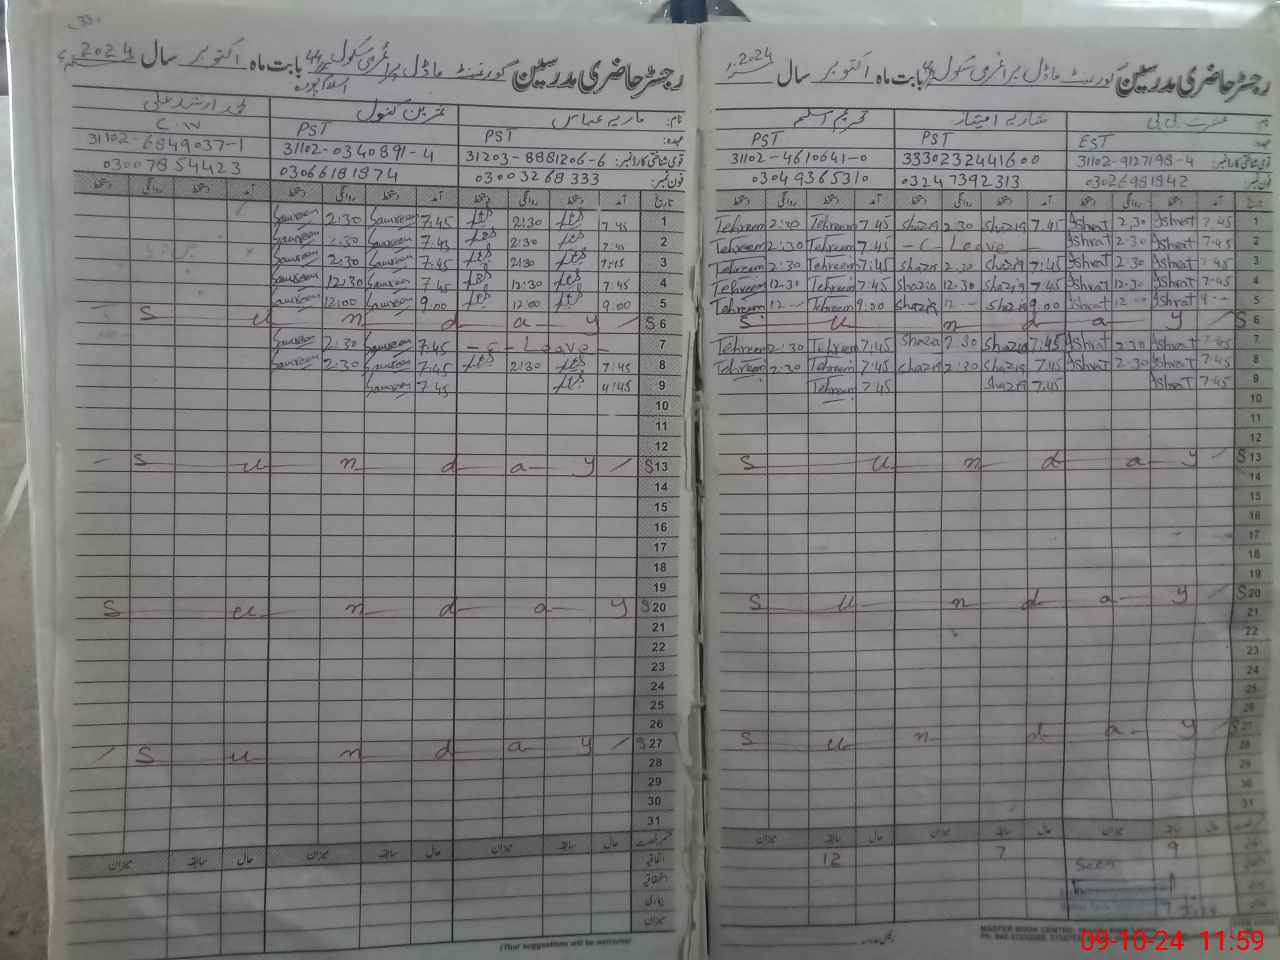 رجسٹر حاضری مدرسین گورنمنٹ ماڈل پرائمری سکول بابت ماہ اکتوبر سال 2024
نام: عشرت بی بی شازیہ امتیاز تحریم اسلم
عہدہ: EST PST PST
قومی شناختی کارڈ نمبر: 31102-9127198-4 3330232441600 31102-4610641-0
فون نمبر: 03026981842 03247392313 03049365310
تاریخ آمد دستخط روانگی دستخط آمد دستخط روانگی دستخط آمد دستخط روانگی دستخط
1 7.45 Ishrat 2.30 Ishrat 7.45 Shazia 2.30 Shazia 7.45 Tehreem 2:30 Tehreem
2 7.45 Ishrat 2.30 Ishrat - C - Leave - 7.45 Tehreem 2:30 Tehreem
3 7.45 Ishrat 2.30 Ishrat 7.45 Shazia 2.30 Shazia 7:45 Tehreem 2:30 Tehreem
4 7.45 Ishrat 12.30 Ishrat 7.45 Shazia 12.30 Shazia 7.45 Tehreem 12.30 Tehreem
5 9-- Ishrat 12-- Ishrat 9.00 Shazia 12-- Shazia 9.00 Tehreem 12-- Tehreem
S 6 S u n d a y
7 7.45 Ishrat 2.30 Ishrat 7.45 Shazia 2.30 Shazia 7.45 Tehreem 2:30 Tehreem
8 7.45 Ishrat 2.30 Ishrat 7.45 Shazia 2.30 Shazia 7.45 Tehreem 2:30 Tehreem
9 7.45 Ishrat 7.45 Shazia 7.45 Tehreem
10
11
12
S 13 S u n d a y
14
15
16
17
18
19
S 20 S u n d a y
21
22
23
24
25
26
S 27 S u n d a y
28
29
30
31
حال سابقہ میزان حال سابقہ میزان
9 7 12
Seen
MASTER BOOK CENTRE
33
رجسٹر حاضری مدرسین گورنمنٹ ماڈل پرائمری سکول 44 بابت ماہ اکتوبر سال 2024
اسلام پورہ
ماریہ عباس نمرین کنول محمد ارشد علی
PST PST C.W
31203-8881206-6 31102-0340891-4 31102-6849037-1
03003268333 03066181874 03007854423
تاریخ آمد دستخط روانگی دستخط آمد دستخط روانگی دستخط آمد دستخط روانگی دستخط
1 7.45 2:30 7.45 2:30
2 7.45 2:30 7.45 2.30
3 7:45 2:30 7.45 2.30
4 7.45 12:30 7.45 12:30
5 9.00 12:00 9.00 12:00
S 6 S u n d a y
7 - C - Leave - 7.45 2:30
8 7:45 2:30 7.45 2:30
9 7.45
10
11
12
S 13 S u n d a y
14
15
16
17
18
19
S 20 S u n d a y
21
22
23
24
25
26
S 27 S u n d a y
28
29
30
31
حال سابقہ میزان حال سابقہ میزان حال سابقہ میزان
اتفاقیہ
بیماری
میزان
(Your suggestions will be welcome)
09-10-24 11:59